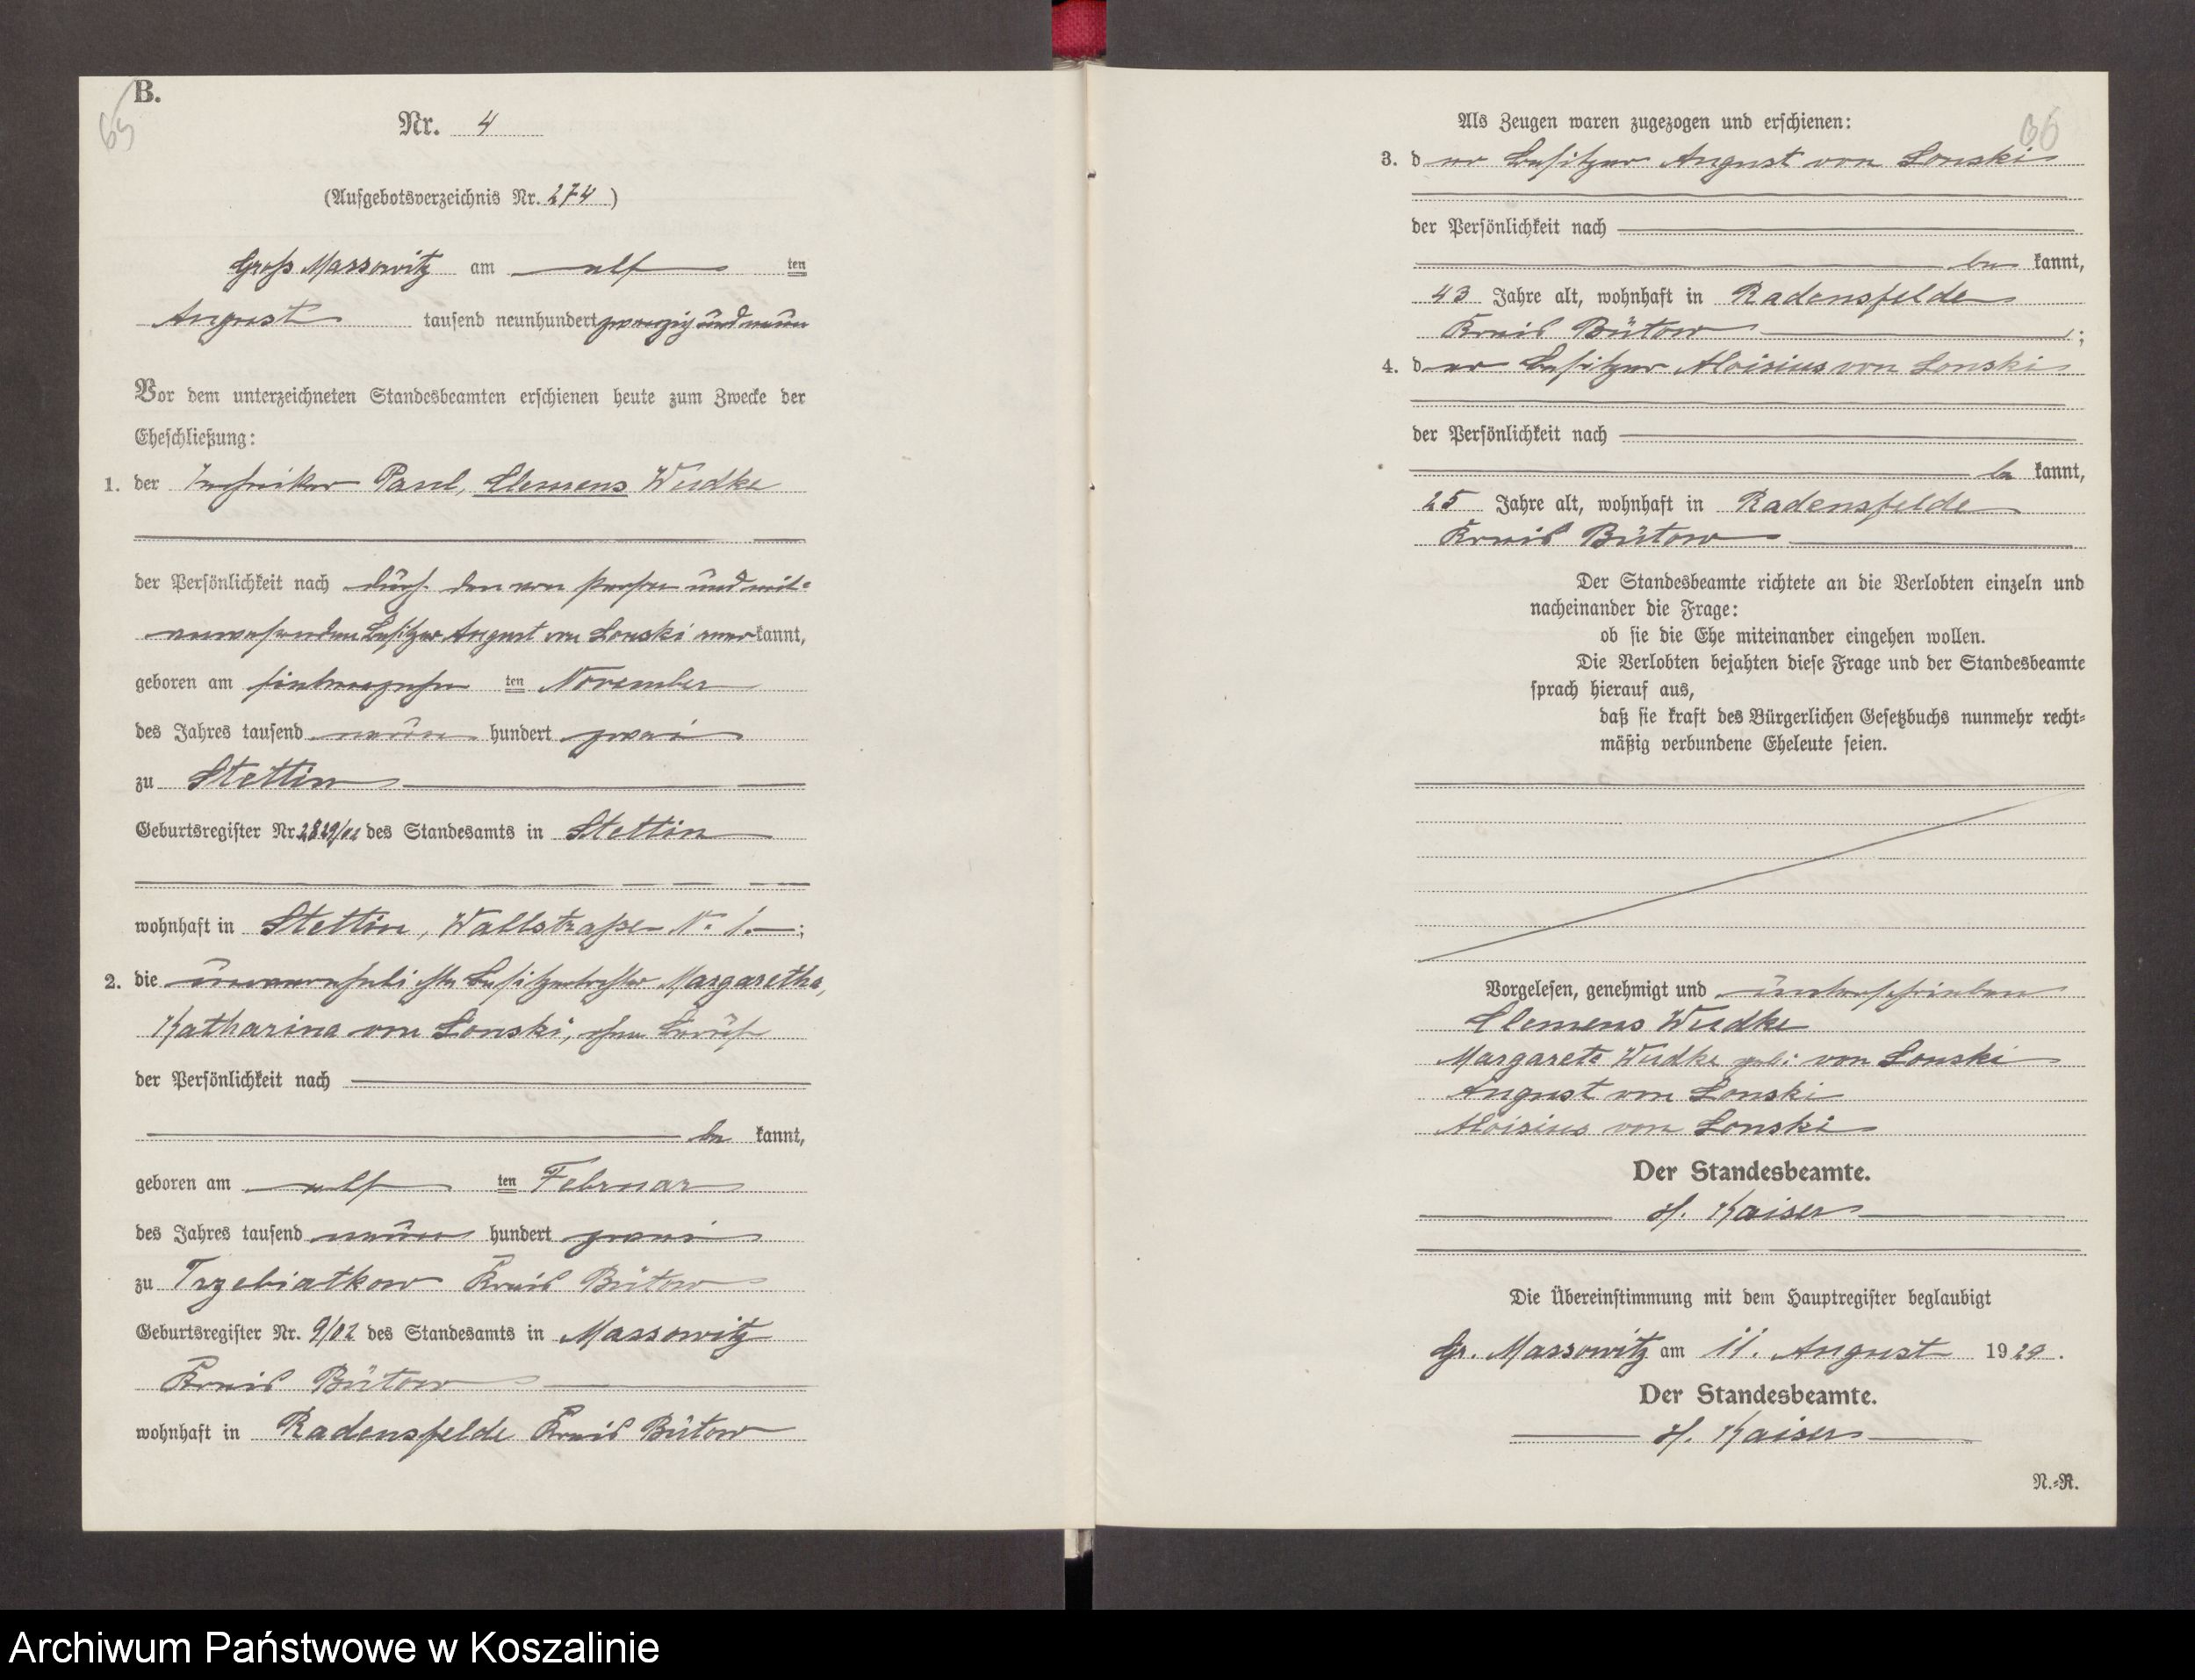 B.
65
Nr. 4
(Aufgebotsverzeichnis Nr. 274)
Groß Massowitz am elf ten
August tausend neunhundert zwanzig und neun
Vor dem unterzeichneten Standesbeamten erschienen heute zum Zwecke der
Eheschließung:
1. der Techniker Paul, Clemens Wudke
der Persönlichkeit nach durch den von Person und mit-
anwesenden Besitzer August von Lonski anerkannt,
geboren am siebenzehn ten November
des Jahres tausend neun hundert zwei
zu Stettin
Geburtsregister Nr. 2829/02 des Standesamts in Stettin
wohnhaft in Stettin, Wallstraße N. 1.;
2. die unverehelichte Besitzertochter Margaretha,
Katharina von Lonski, ohne Beruf
der Persönlichkeit nach
be kannt,
geboren am elf ten Februar
des Jahres tausend neun hundert zwei
zu Trzebiatkow Kreis Bütow
Geburtsregister Nr. 9/02 des Standesamts in Massowitz
Kreis Bütow
wohnhaft in Radensfelde Kreis Bütow
66
Als Zeugen waren zugezogen und erschienen:
3. der Besitzer August von Lonski
der Persönlichkeit nach
be kannt,
43 Jahre alt, wohnhaft in Radensfelde
Kreis Bütow;
4. der Besitzer Aloisius von Lonski
der Persönlichkeit nach
be kannt,
25 Jahre alt, wohnhaft in Radensfelde
Kreis Bütow
Der Standesbeamte richtete an die Verlobten einzeln und
nacheinander die Frage:
ob sie die Ehe miteinander eingehen wollen.
Die Verlobten bejahten diese Frage und der Standesbeamte
sprach hierauf aus,
daß sie kraft des Bürgerlichen Gesetzbuchs nunmehr recht-
mäßig verbundene Eheleute seien.
Vorgelesen, genehmigt und unterschrieben
Clemens Wudke
Margarete Wudke geb: von Lonski
August von Lonski
Aloisius von Lonski
Der Standesbeamte.
H. Kaiser
Die Übereinstimmung mit dem Hauptregister beglaubigt
Gr. Massowitz am 11. August 1929.
Der Standesbeamte.
H. Kaiser
N.-R.
Archiwum Państwowe w Koszalinie